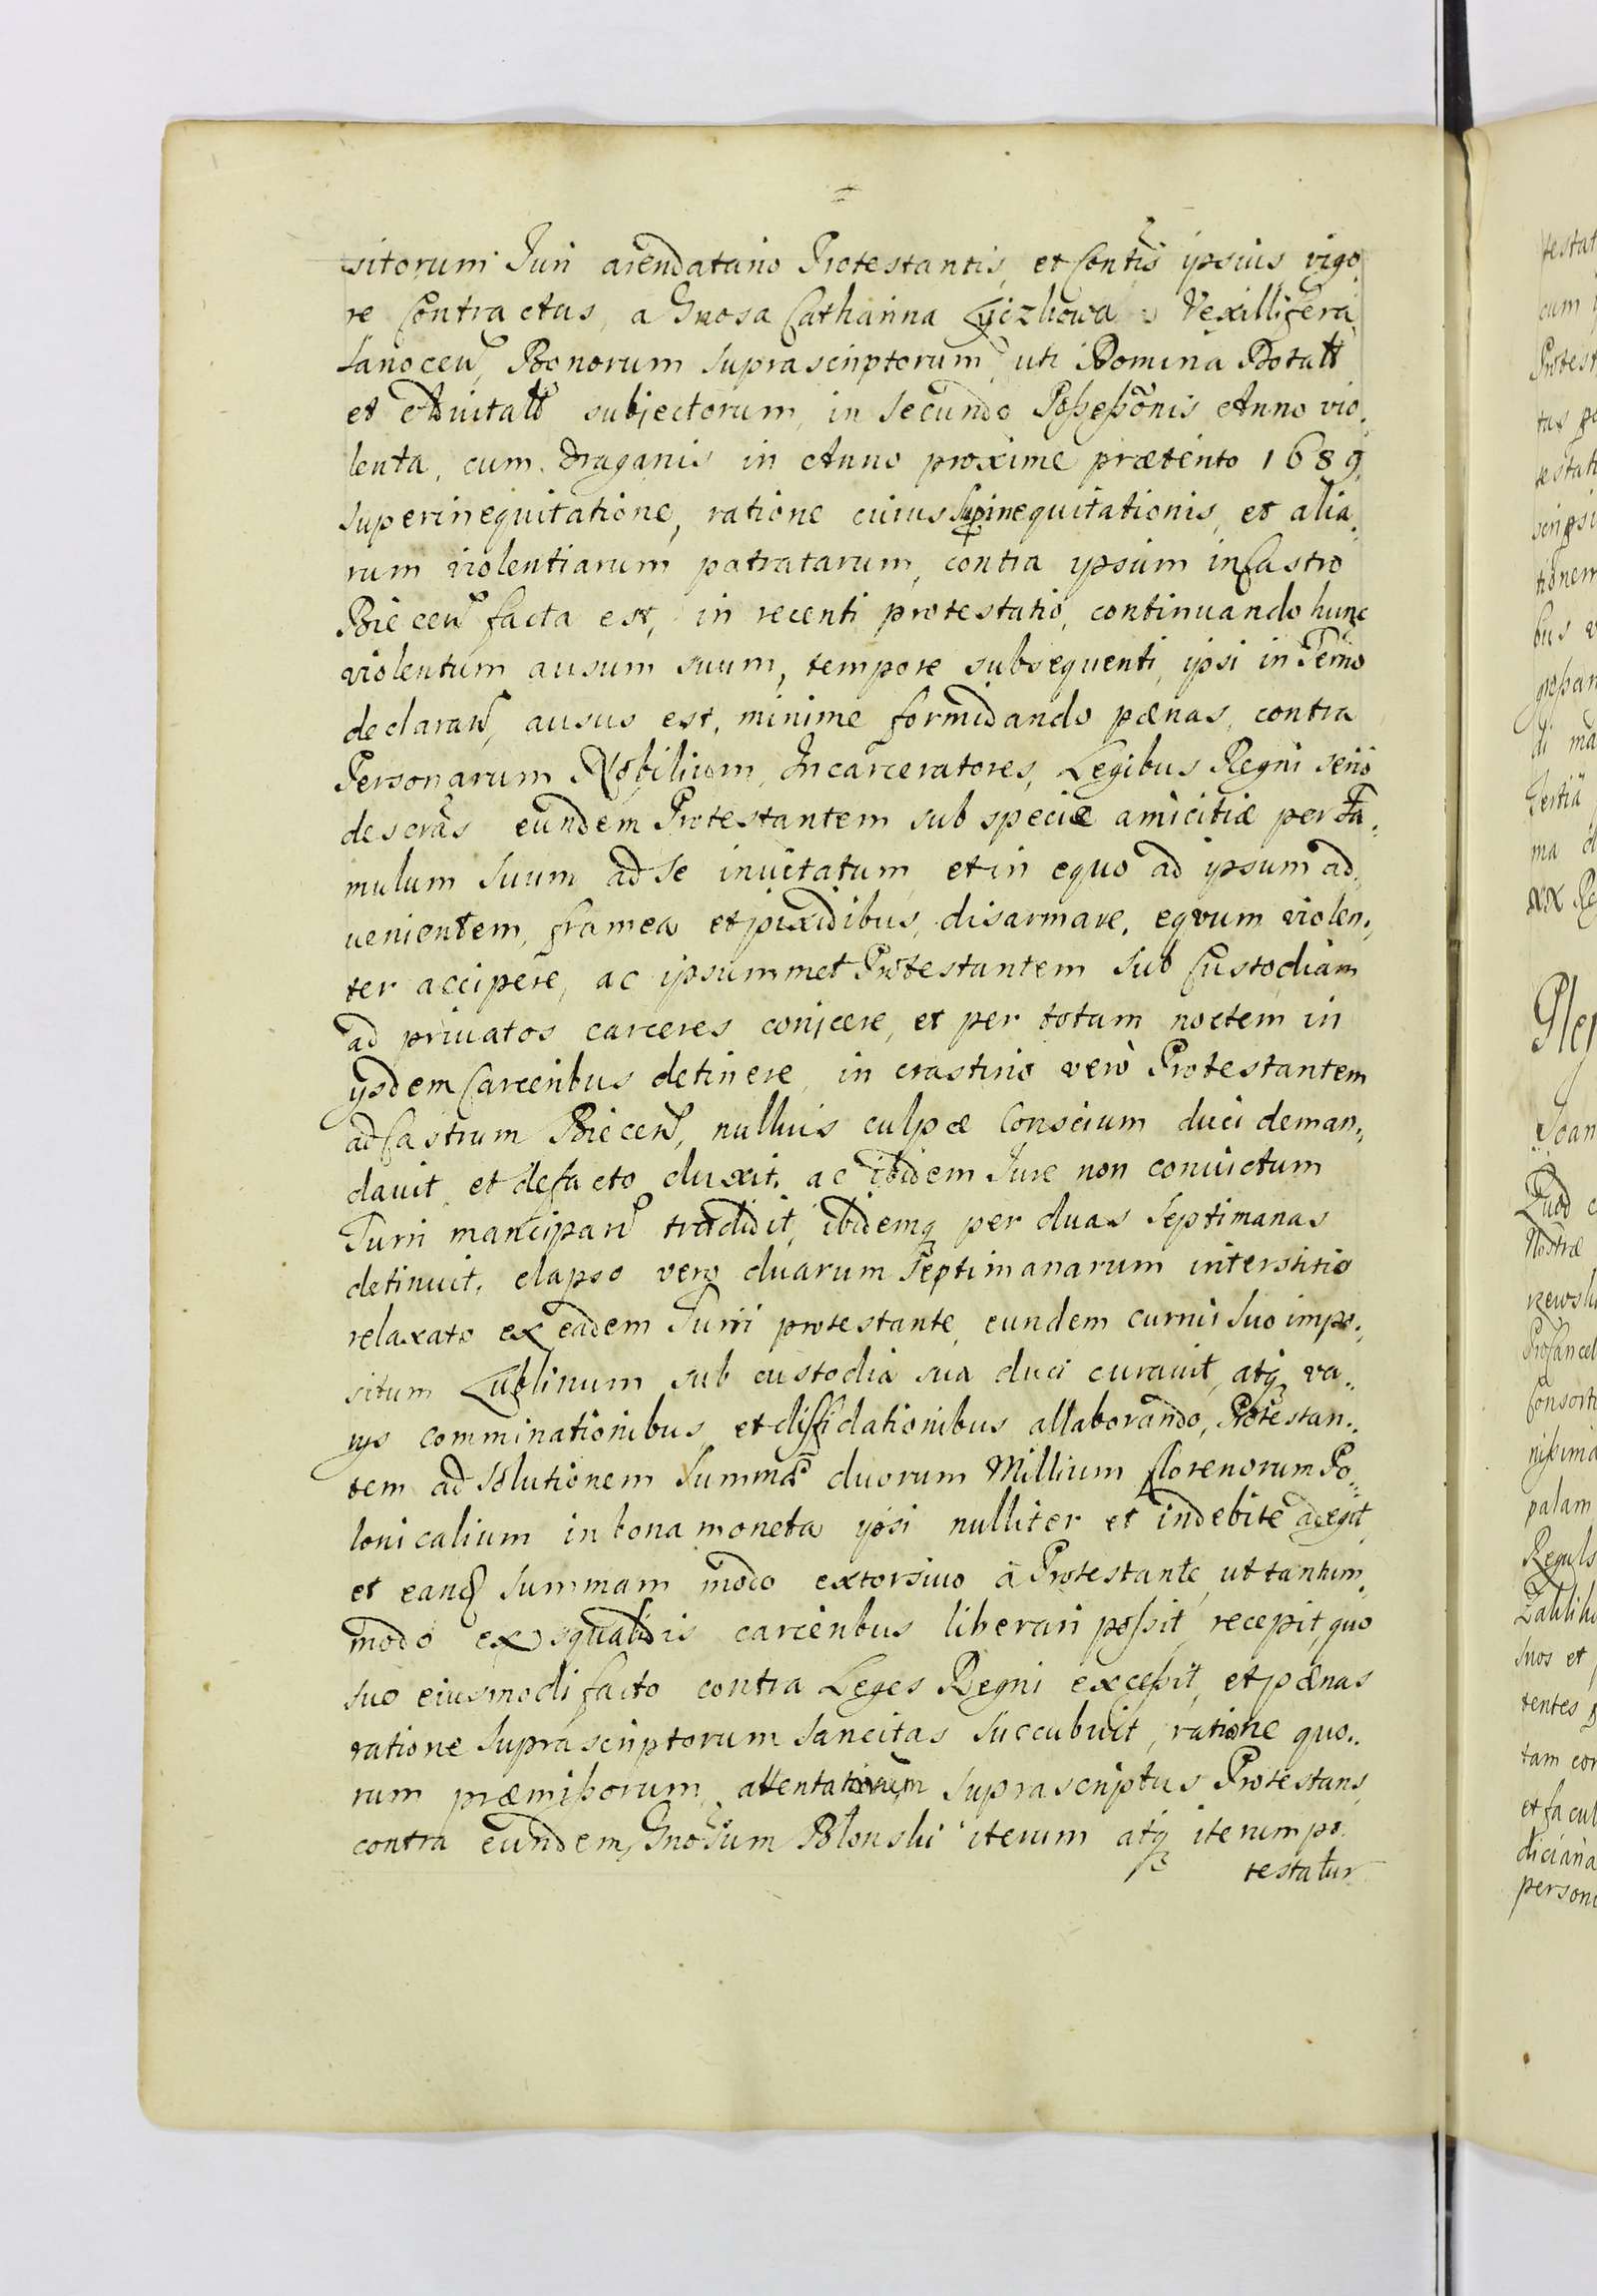 sitorum Juri arendatario Protestantis, et Contis ipsius vigo
re Contractus, a Gnosa Catharina Łyczkowa Vexillifera
Sanocen, Bonorum suprascriptorum, uti Domina Dotali
et Advitali subjectorum, in secundo Possessõnis Anno vio,
lenta, cum Draganis in Anno proxime præterito 1689
superinequitatione, ratione cuius supinequitationis, et alia,
rum violentiarum patratarum, contra ypsum in Castro
Biecen facta est, in recenti protestatio, continuando hunc
violentum ausum suum, tempore subsequenti, ypsi in Termo
declaran, ausus est, minime formidando pænas, contra
Personarum Nobilium, Incarceratores, Legibus Regni serio
descras eundem Protestantem sub specie amicitiæ per Fa,
mulum suum ad se inuitatum, et in equo ad ypsum ad,
uenientem, framea et pixidibus, disarmare, eqvum violen,
ter accipere, ac ipsummet Protestantem sub Custodiam
ad priuatos carceres conjcere, et per totam noctem in
ysdem Carceribus detinere, in crastino verò Protestantem
ad Castrum Biecen, nullius culpæ Conscium duci deman,
dauit, et defacto duxit, ac ibidem Jure non conuictum
Turri mancipari tradidit, ibidemq per duas Septimanas
detinuit, elapso vero duarum Septimanarum interstitio
relaxato ex eadem Turri protestante, eundem currui suo impo,
situm Lublinum sub custodia sua duci curauit, atq va,
rys comminationibus, et diffidationibus allaborando, Protestan,
tem ad solutionem summæ duorum Millium florenorum Po,
lonicalium in bona moneta ypsi nulliter et indebitè adegit,
et eand summam modo extorsiuo à Protestante, ut tantum,
modo ex squalidis carceribus liberari possit, recepit, quo
suo eiusmodi facto contra Leges Regni excessit, et pænas
ratione suprascriptorum sancitas succubuit, ratione quo,
rum præmissorum, attentatorum suprascriptus Protestans,
contra eundem Gnosum Blonski iterum atq iterum pro
testatur